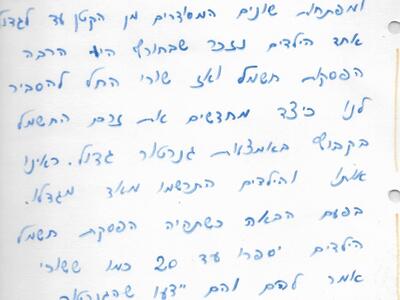 ומפתחות שונים המסודרים מן הקטן עד לגדול
אחד הילדים נזכר שבחורף היו הרבה
הפסקות חשמל ואז שורי החל להסביר
לנו כיצד מחדשים את זרם החשמל
בקבוץ באמצעות גנרטור גדול. ראינו
אותו והילדים התרשמו מאד מגדלו.
בפעם הבאה כשתהיה הפסקת חשמל
הילדים יספרו עד 20 כמו ששורי
אמר להם והם יידעו שהגנרטור